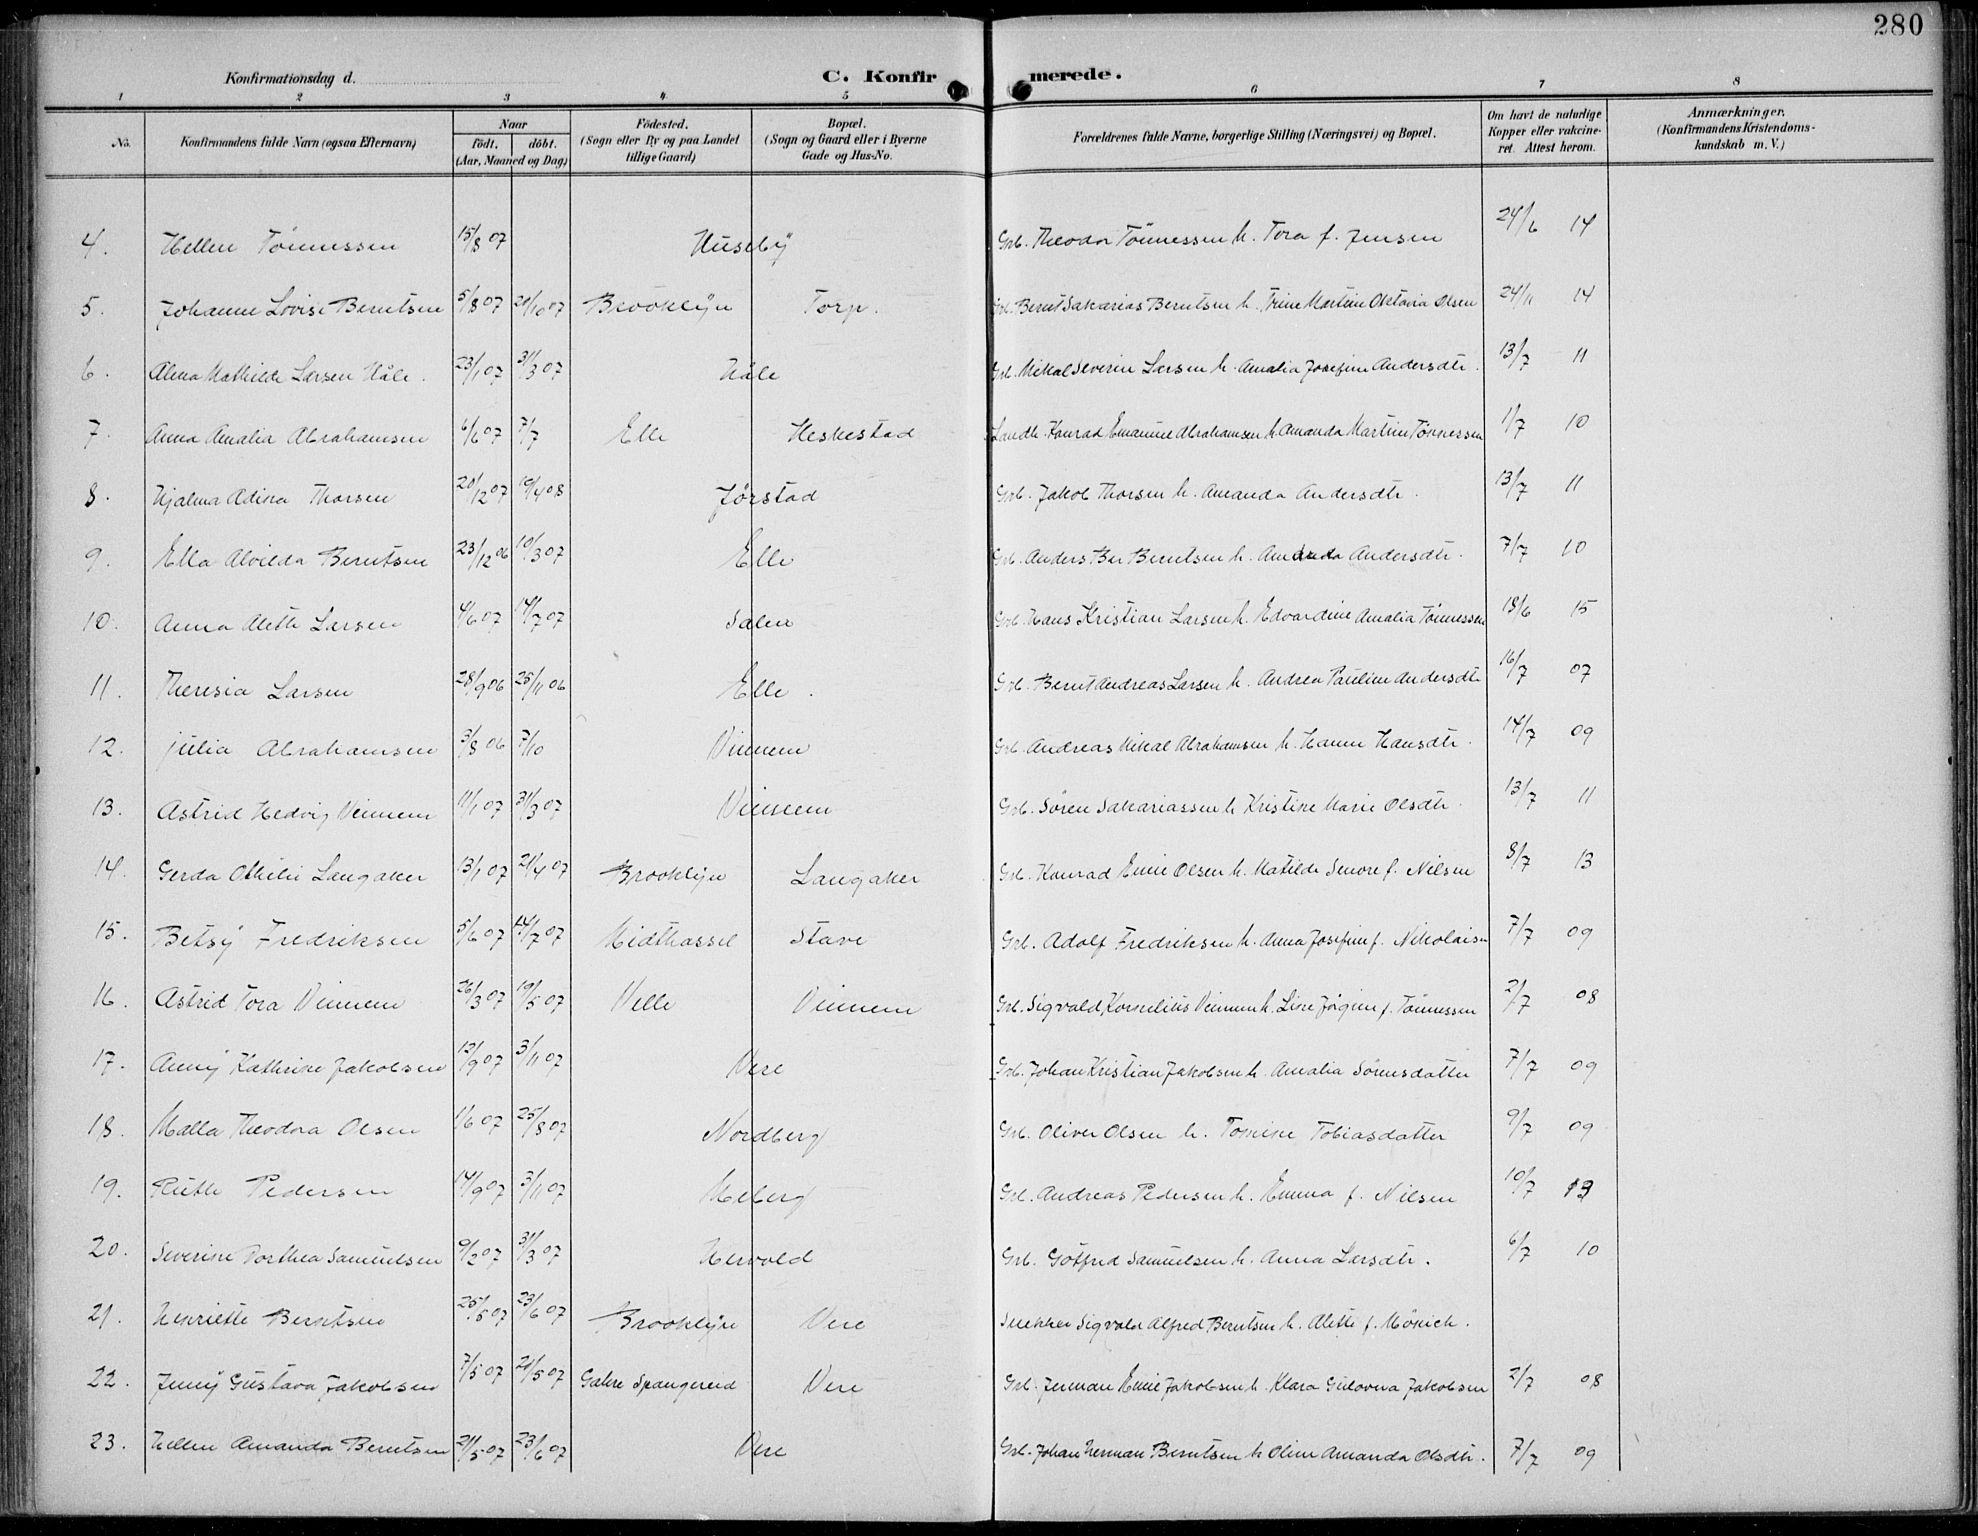 280
Konfirmationsdag d.
C. Konfirmerede.
1 2 3 4 5 6 7 8
No. Konfirmandens fulde Navn (ogsaa Efternavn) Naar födt. döbt. (Aar, Maaned og Dag) Födested. (Sogn eller By og paa Landet tillige Gaard) Bopæl. (Sogn og Gaard eller i Byerne Gade og Hus-No. Forældrenes fulde Navne, borgerlige Stilling (Næringsvei) og Bopæl. Om havt de naturlige Kopper eller vakcineret. Attest herom. Anmærkninger. (Konfirmandens Kristendomskundskab m. V.)
4. Hellen Tönnessen 15/8 07 Huseby Grb. Theodor Tönnessen h. Tora f. Jensen 24/6 14
5. Johanne Lovise Berntsen 5/8 07 20/10 07 Brooklyn Torp. Grb. Bernt Sakarias Berntsen h. Trine Martine Oktavia Olsen 24/11 14
6. Alma Mathilde Larsen Håle. 23/1 07 31/3 07 Håle Grb. Mikal Severin Larsen h. Amalia Josefine Andersdtr. 13/7 11
7. Anna Amalia Abrahamsen 6/6 07 7/7 Elle Heskestad Landh. Konrad Emanuel Abrahamsen h. Amanda Martine Tönnessen 1/7 10
8. Hjalma Adina Thorsen 20/12 07 19/4 08 Jørstad Grb. Jakob Thorsen h. Amanda Andersdtr. 13/7 11
9. Ella Alvilda Berntsen 23/12 06 10/3 07 Elle Grb. Anders Ber Berntsen h. Amanda Andersdtr. 7/7 10
10. Anna Aleth Larsen 4/6 07 14/7 07 Salen Grb. Hans Kristian Larsen h. Edvardine Amalia Tönnessen 18/6 15
11. Theresia Larsen 28/9 06 25/11 06 Elle. Grb. Bernt Andreas Larsen h. Andrea Pauline Andersdtr 16/7 07
12. Julia Abrahamsen 3/8 06 7/10 Vinnem Grb. Andreas Mikal Abrahamsen h. Hanne Hansdtr. 14/7 09
13. Astrid Hedvig Vinnem 11/1 07 31/3 07 Vinnem Grb. Sören Sakariassen h. Kristine Marie Olsdtr. 13/7 11
14. Gerda Othilie Langaker 13/1 07 21/4 07 Brooklyn Langaker Grb. Konrad Emil Olsen h. Matilde Senore f. Nilsen 8/7 13
15. Betsy Fredriksen 5/6 07 14/7 07 Midthassel Stave Grb. Adolf Fredriksen h. Anna Josefine f. Nikolaisen 7/7 09
16. Astrid Tora Vinnem 26/3 07 19/5 07 Velle Vinnem Grb. Sigvald Kornelius Vinnem h. Line Jörgine f. Tönnessen 2/7 08
17. Anny Kathrine Jakobsen 13/9 07 3/11 07 Vere Grb. Johan Kristian Jakobsen h. Amalia Sörensdatter 7/7 09
18. Malla Theodora Olsen 1/6 07 25/8 07 Nordberg Grb. Oliver Olsen h. Tomine Tobiasdatter 9/7 09
19. Ruth Pedersen 14/9 07 3/11 07 Meberg Grb. Andreas Pedersen h. Emma f. Nilsen 10/7 13
20. Severine Dorthea Samuelsen 9/2 07 31/3 07 Hervold Grb. Gotfred Samuelsen h. Anna Larsdtr. 6/7 10
21. Henriette Berntsen 25/5 07 23/6 07 Brooklyn Vere Snekker Sigvald Alfred Berntsen h. Alette f. Mönich.
22. Jenny Gustava Jakobsen 7/5 07 20/5 07 Gahre Spangereid Vere Grb. Jerman Emil Jakobsen h. Klara Gulovna Jakobsen 2/7 08
23. Hellen Amanda Berntsen 21/5 07 23/6 07 Vere Grb. Johan Herman Berntsen h. Oline Amanda Olsdtr. 7/7 09